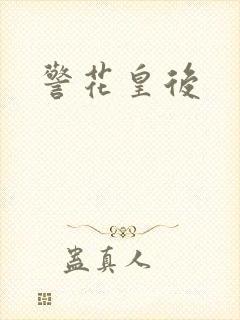 警花皇後
蛊真人